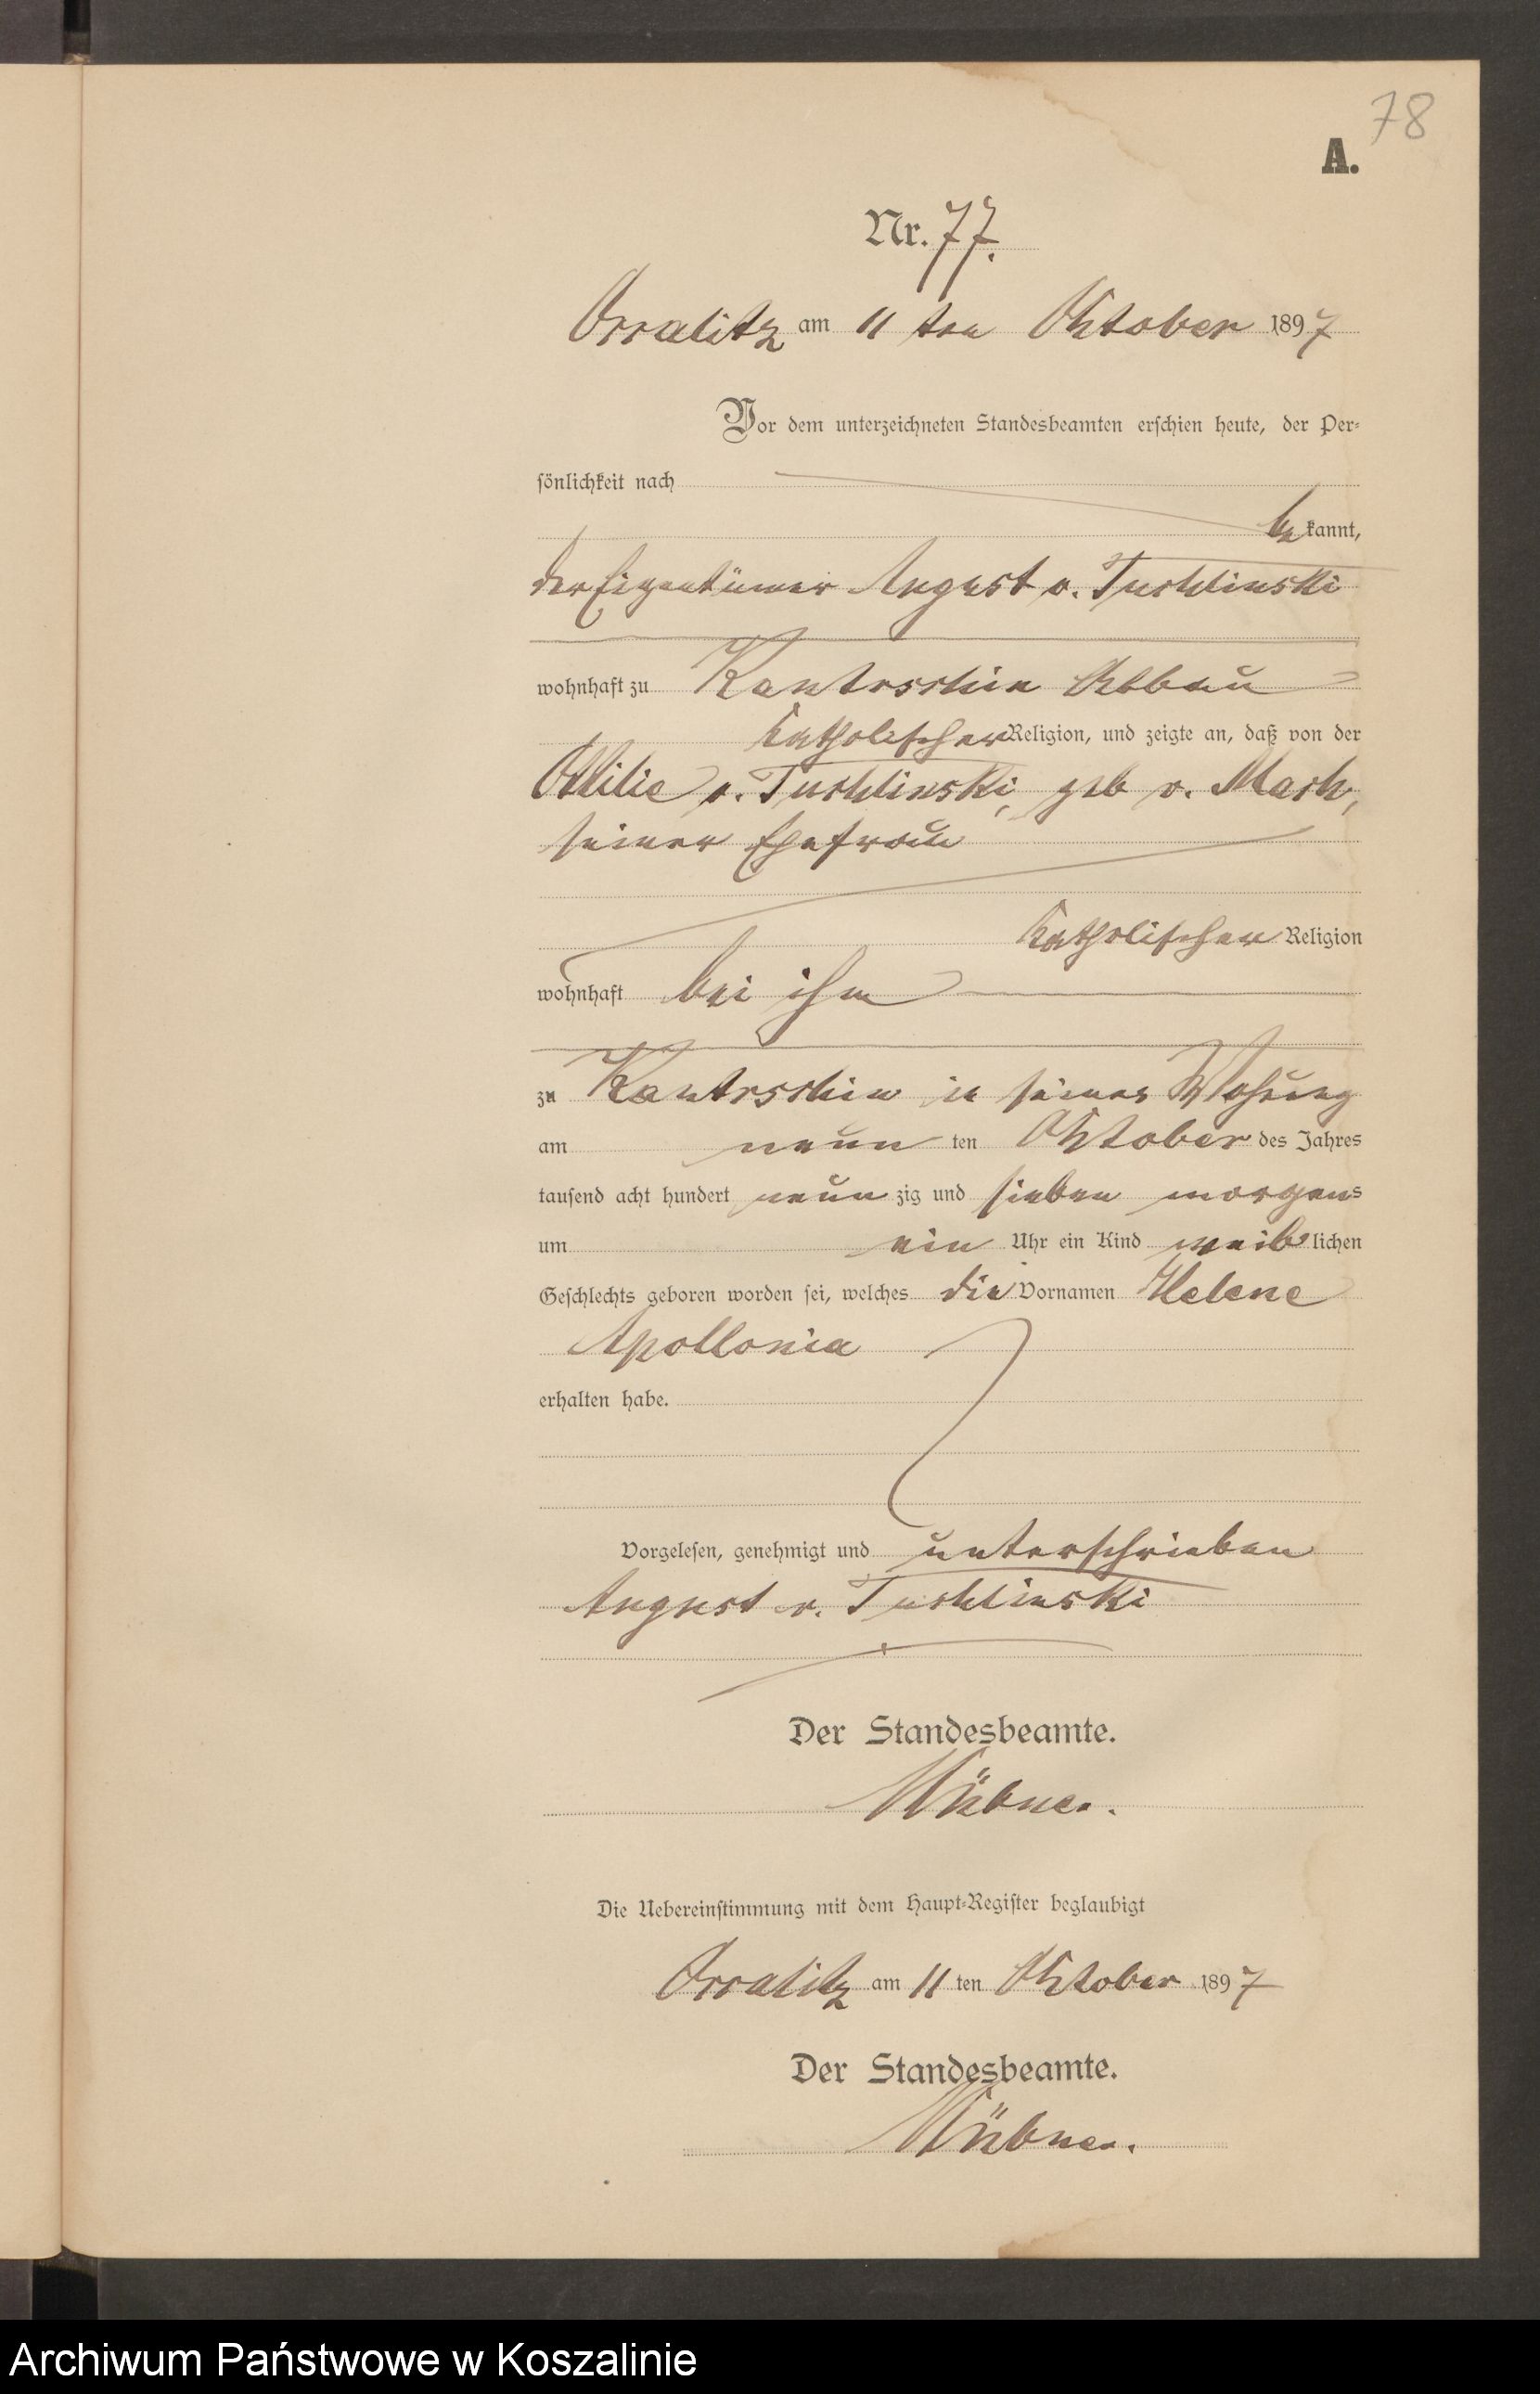 78
A.
Nr. 77.
Ossalitz am 11 ten Oktober 1897
Vor dem unterzeichneten Standesbeamten erschien heute, der Per-
sönlichkeit nach
bekannt,
der Eigentümer August v. Tuchlinski
wohnhaft zu Abbau
katholischer Religion, und zeigte an, daß von der
Ottilie v. Tuchlinski, geb v. Mach,
seiner Ehefrau
katholischer Religion
wohnhaft bei ihm
zu in seiner Wohung
am neun ten Oktober des Jahres
tausend acht hundert neun zig und sieben morgens
um ein Uhr ein Kind weiblichen
Geschlechts geboren worden sei, welches die Vornamen Helene
Apollonia
erhalten habe.
Vorgelesen, genehmigt und unterschrieben
August v. Tuchlinski
Der Standesbeamte.
Die Uebereinstimmung mit dem Haupt-Register beglaubigt
Ossalitz am 11 ten Oktober 1897
Der Standesbeamte.
Archiwum Państwowe w Koszalinie